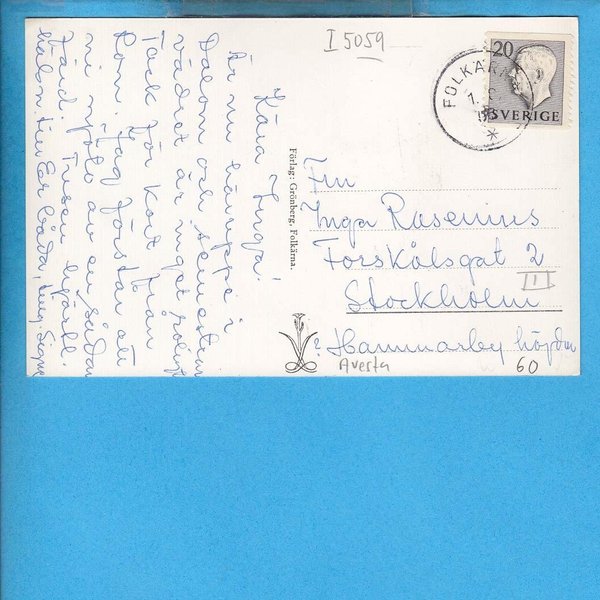 I 5059
Kära Inga!
Är nu häruppe i
Dalom och semestrar
vädret är inget roligt
Tack för kort från
Rom. Jag förstår att
ni njöto av en sådan
färd. Tusen hjärtl.
hälsn till Er båda, Sign
Förlag: Grönberg, Folkärna.
20
SVERIGE
FOLKÄRNA
Fru
Inga Rosenius
Forskålsgat 2
III
Stockholm
Hammarby höjden
Avesta
60